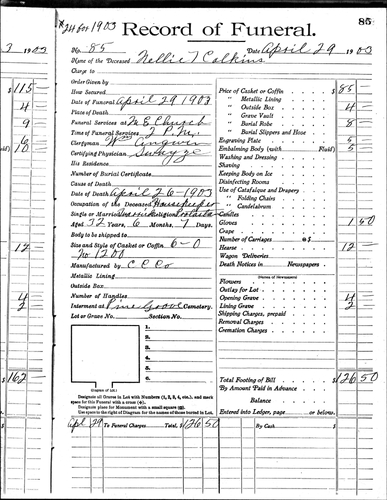 *24 for 1903
Record of Funeral.
85
No. 85
Date April 29 1903
Name of the Deceased Nellie T Calkins
Charge to
Order Given by
How Secured
Date of Funeral April 29 1903
Place of Death
Funeral Services at M E Church
Time of Funeral Services 2 P.M.
Clergyman Wm
Certifying Physician
His Residence
Number of Burial Certificate
Cause of Death
Date of Death April 26 - 1903
Occupation of the Deceased Housekeeper
Single or Married Religion
Aged 32 Years, 6 Months, 7 Days.
Body to be shipped to
Size and Style of Casket or Coffin 6-0
No 1200
Manufactured by C C Co
Metallic Lining
Outside Box
Number of Handles
Interment at Pine Grove Cemetery.
Lot or Grave No. Section No.
1.
2.
3.
4.
5.
6.
(Diagram of Lot.)
Designate all Graves in Lot with Numbers (1, 2, 3, 4, etc.), and mark
space for this Funeral with a cross (+).
Designate place for Monument with a small square (□).
Use space to the right of Diagram for the names of those buried in Lot.
Apl 29 To Funeral Charges Total, $ 126 50
Price of Casket or Coffin $ 85 —
" Metallic Lining
" Outside Box 4
" Grave Vault
" Burial Robe 8
" Burial Slippers and Hose
Engraving Plate 5
Embalming Body (with Fluid) 5
Washing and Dressing
Shaving
Keeping Body on Ice
Disinfecting Rooms
Use of Catafalque and Drapery
" Folding Chairs
" Candelabrum
Candles
Gloves 1 50
Crape
Number of Carriages @$
Hearse 12 —
Wagon Deliveries
Death Notices in Newspapers
(Names of Newspapers)
Flowers
Outlay for Lot
Opening Grave 4
Lining Grave 2
Shipping Charges, prepaid
Removal Charges
Cremation Charges
Total Footing of Bill $ 126 50
By Amount Paid in Advance
Balance
Entered into Ledger, page or below.
By Cash $
1903
$ 115 —
4
9
6
10
12 —
4
2
$ 162 —